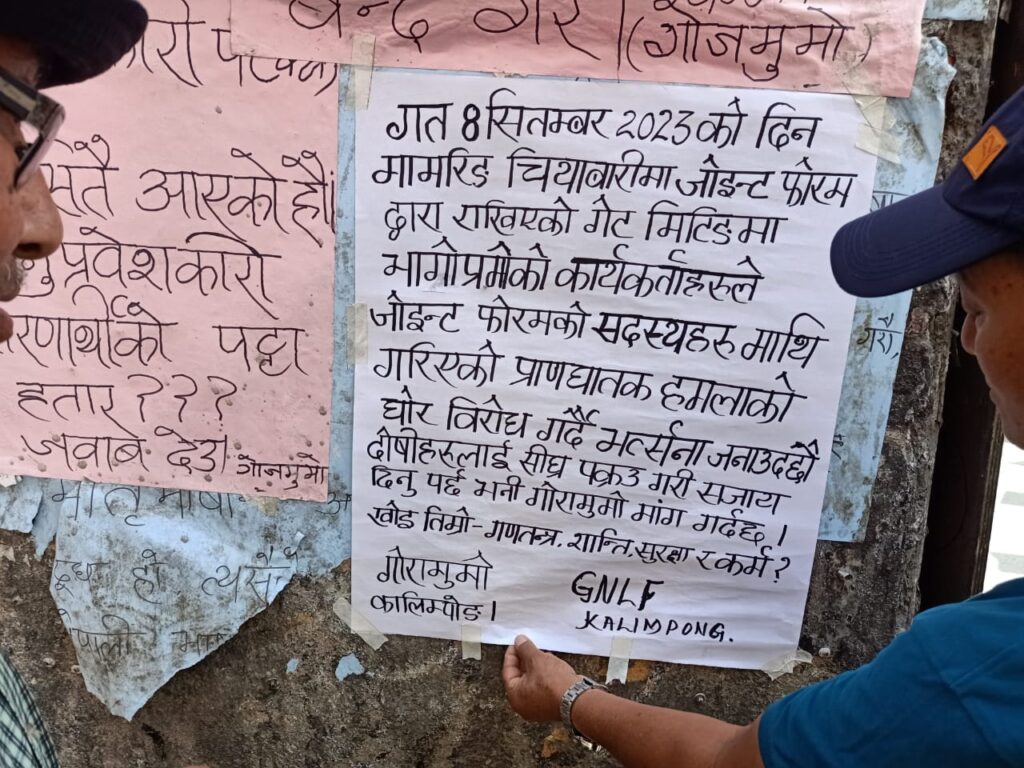 बन्द गर।
(गोजमुमो)
आएको हौं।
अनुप्रवेशकारी
शरणार्थीको पट्टा
हतार???
जवाब देउ। गोजमुमो
गत 8 सितम्बर 2023 को दिन
मामरिङ चियाबारीमा जोइन्ट फोरम
द्वारा राखिएको गेट मिटिङमा
भागोप्रमोको कार्यकर्ताहरुले
जोइन्ट फोरमको सदस्यहरु माथि
गरिएको प्राणघातक हमलाको
घोर विरोध गर्दै भर्त्सना जनाउदछौं
दोषीहरुलाई सीघ्र पक्रउ गरी सजाय
दिनु पर्छ भनी गोरामुमो मांग गर्दछ।
खोइ तिम्रो- गणतन्त्र. शान्ति. सुरक्षा र कर्म?
गोरामुमो
कालिम्पोङ।
GNLF
KALIMPONG.
मातृ भाषा
हो त्यसैले